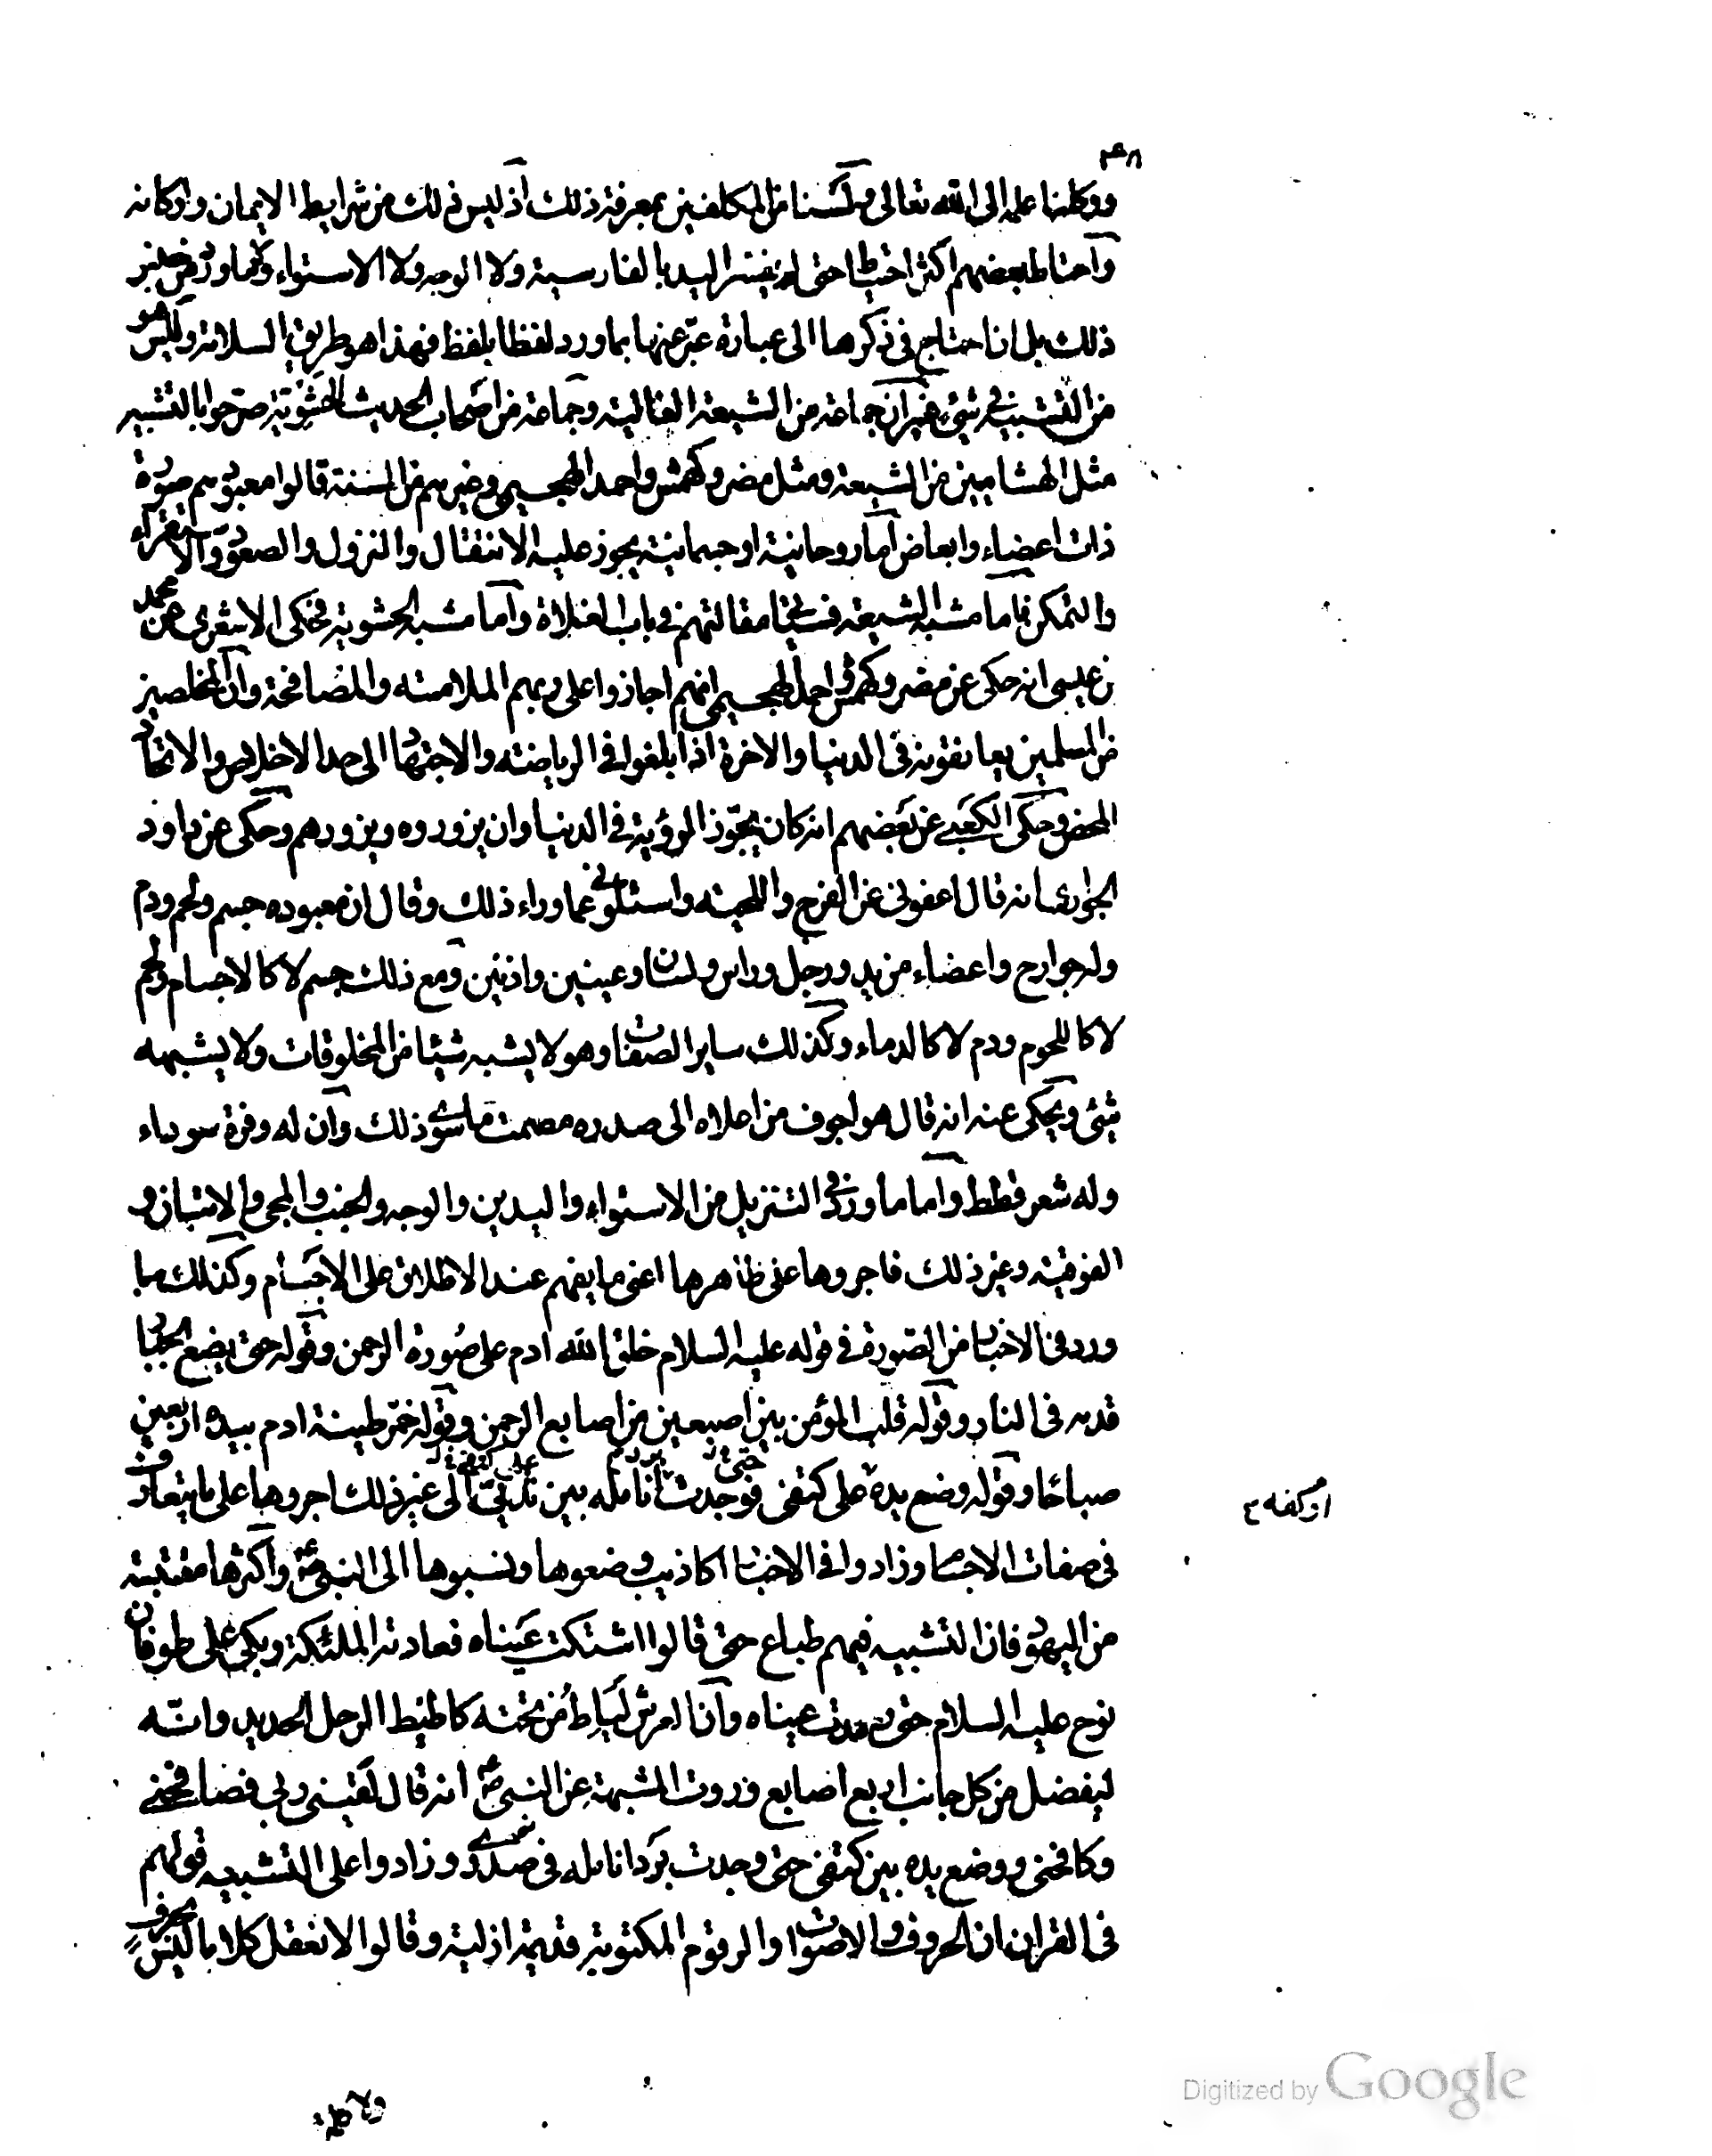 ۴۸
ووكلنا علمه الى الله تعالى ولسنا من المكلفين بمعرفة ذلك اذ ليس ذلك من شرايط الايمان واركانه
واحتاط بعضهم اكثر احتياط حتى لم يفسر اليد بالفارسية ولا الوجه ولا الاستواء ولا ما ورد من جنس
ذلك بل ان احتاج فى ذكرها الى عبارة عبر عنها بما ورد لفظا بلفظ فهذا هو طريق السلامة وليس هو
من التشبيه فى شئ غير ان جماعة من الشيعة الغالية وجماعة من اصحاب الحديث الحشوية صرحوا بالتشبيه
مثل الهشاميين من الشيعة ومثل مضر وكهمش واحمد الهجيمى وغيرهم من السنة قالوا معبودهم صورة
ذات اعضاء وابعاض اما روحانية او جسمانية يجوز عليه الانتقال والنزول والصعود والاستقراء
والتمكن فاما مشبه الشيعة فستأتى مقالتهم فى باب الغلاة واما مشبه الحشوية فحكى الاشعرى عن محمد
بن عيسى انه حكى عن مضر وكهمش واحمد الهجيمى انهم اجازوا على ربهم الملامسة والمصافحة وان المخلصين
من المسلمين يعانقونه فى الدنيا والاخرة اذا بلغوا فى الرياضة والاجتهاد الى حد الاخلاص والاتحاد
المحض وحكى الكعبى عن بعضهم انه كان يجوز الرؤية فى الدنيا وان يزوروه ويزورهم وحكى عن داود
الجواربى انه قال اعفونى عن الفرج واللحية واسئلونى عما وراء ذلك وقال ان معبوده جسم ولحم ودم
وله جوارح واعضاء من يد ورجل وراس ولسان وعينين واذنين ومع ذلك جسم لا كالاجسام ولحم
لا كاللحوم ودم لا كالدماء وكذلك ساير الصفات وهو لا يشبه شيئا من المخلوقات ولا يشبهه
شئ ويحكى عنه انه قال هو اجوف من اعلاه الى صدره مصمت ما سوى ذلك وان له وفرة سوداء
وله شعر قطط واما ما ورد فى التنزيل من الاستواء واليدين والوجه والجنب والمجئ والاتيان و
الفوقية وغير ذلك فاجروها على ظاهرها اعنى ما يفهم عند الاطلاق على الاجسام وكذلك ما
ورد فى الاخبار من الصورة فى قوله عليه السلام خلق الله ادم على صورة الرحمن وقوله حتى يضع الجبار
قدمه فى النار وقوله قلب المؤمن بين اصبعين من اصابع الرحمن وقوله خمر طينة ادم بيده اربعين
صباحا وقوله وضع يده على كتفى فوجدت انامله بين ثديى الى غير ذلك اجروها على ما يتعارف
حتى برد على كتفى
او كفه
فى صفات الاجسام وزادوا فى الاخبار اكاذيب وضعوها ونسبوها الى النبى واكثرها مقتبسة
من اليهود فان التشبيه فيهم طباع حتى قالوا اشتكت عيناه فعادته الملئكة وبكى على طوفان
نوح عليه السلام حتى رمدت عيناه وان العرش ليأط من تحته كاطيط الرحل الحديد وانه
ليفضل من كل جانب اربع اصابع وروت المشبهة عن النبى انه قال لقينى ربى فصافحنى
وكافحنى ووضع يده بين كتفى حتى وجدت برد انامله فى صدرى وزادوا على التشبيه قولهم
فى القران ان الحروف والاصوات والرقوم المكتوبة قديمة ازلية وقالوا لا نعقل كلاما ليس بحرف
ولا كلمة
Digitized by Google